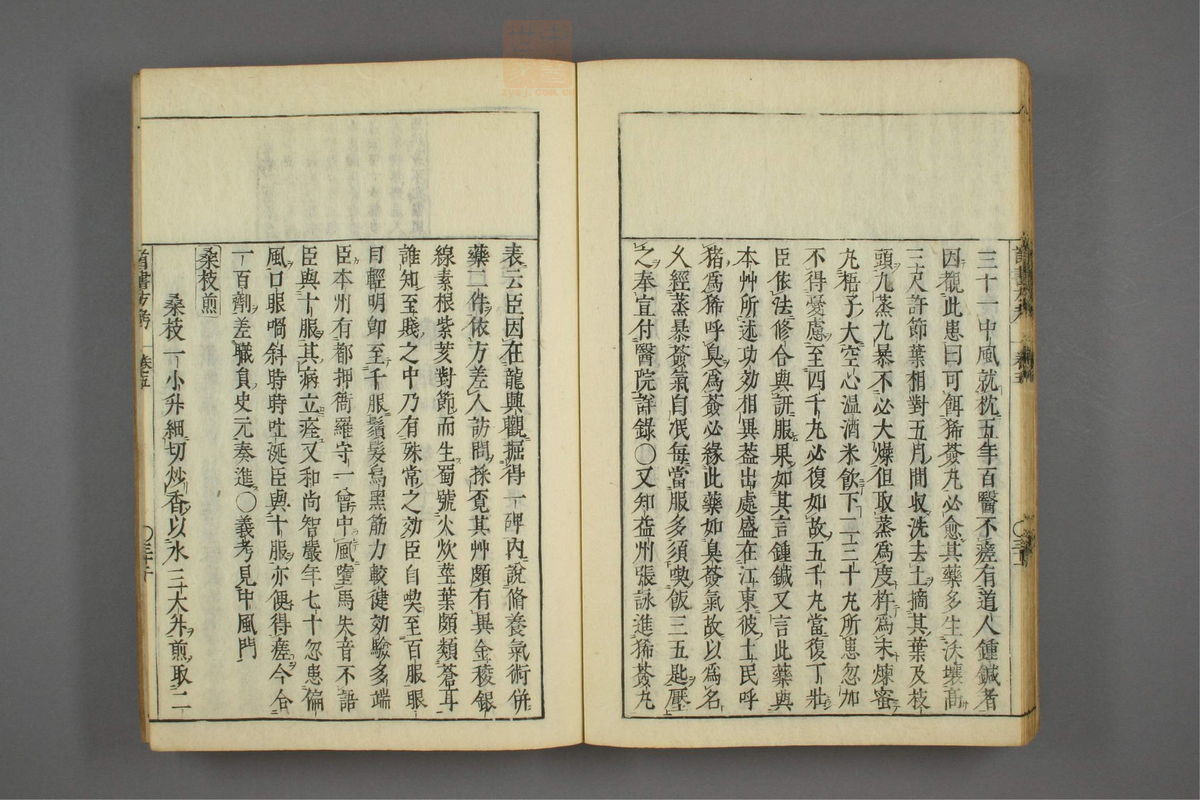 三十一中風就枕五年百醫不瘥有道人鍾鍼者
因觀此患曰可餌豨薟丸必愈其藥多生沃壤高
三尺許節葉相對五月間收洗去土摘其葉及枝
頭九蒸九暴不必大燥但取蒸爲度杵爲末煉蜜
丸梧子大空心温酒米飲下二三十丸所患忽加
不得憂慮至四千丸必復如故五千丸當復丁壯
臣依法修合與訮服果如其言鍾鍼又言此藥與
本艸所述功効相異葢出處盛在江東彼土民呼
猪爲豨呼臭爲薟必緣此藥如臭薟氣故以爲名
乂經蒸暴薟氣自泯每當服多須喫飯三五匙壓
之奉宣付醫院詳錄○又知益州張詠進豨薟丸
表云臣因在龍興觀掘得一碑内說脩養氣術併
藥二件依方差人訪問採覔其艸頗有異金稜銀
線素根紫荄對節而生蜀號火炊莖葉頗類蒼耳
誰知至賤之中乃有殊常之効臣自喫至百服眼
目輕明卽至千服鬚髮烏黑筋力較健効驗多端
臣本州有都押衙羅守一曾中風墮馬失音不語
臣與十服其病立痊又和尚智嚴年七十忽患偏
風口眼喎斜時時吐涎臣與十服亦便得瘥今合
一百劑差職貟史元奏進○義考見中風門
桑枝煎
桑枝一小升細切炒香以水三大升煎取二
卷五